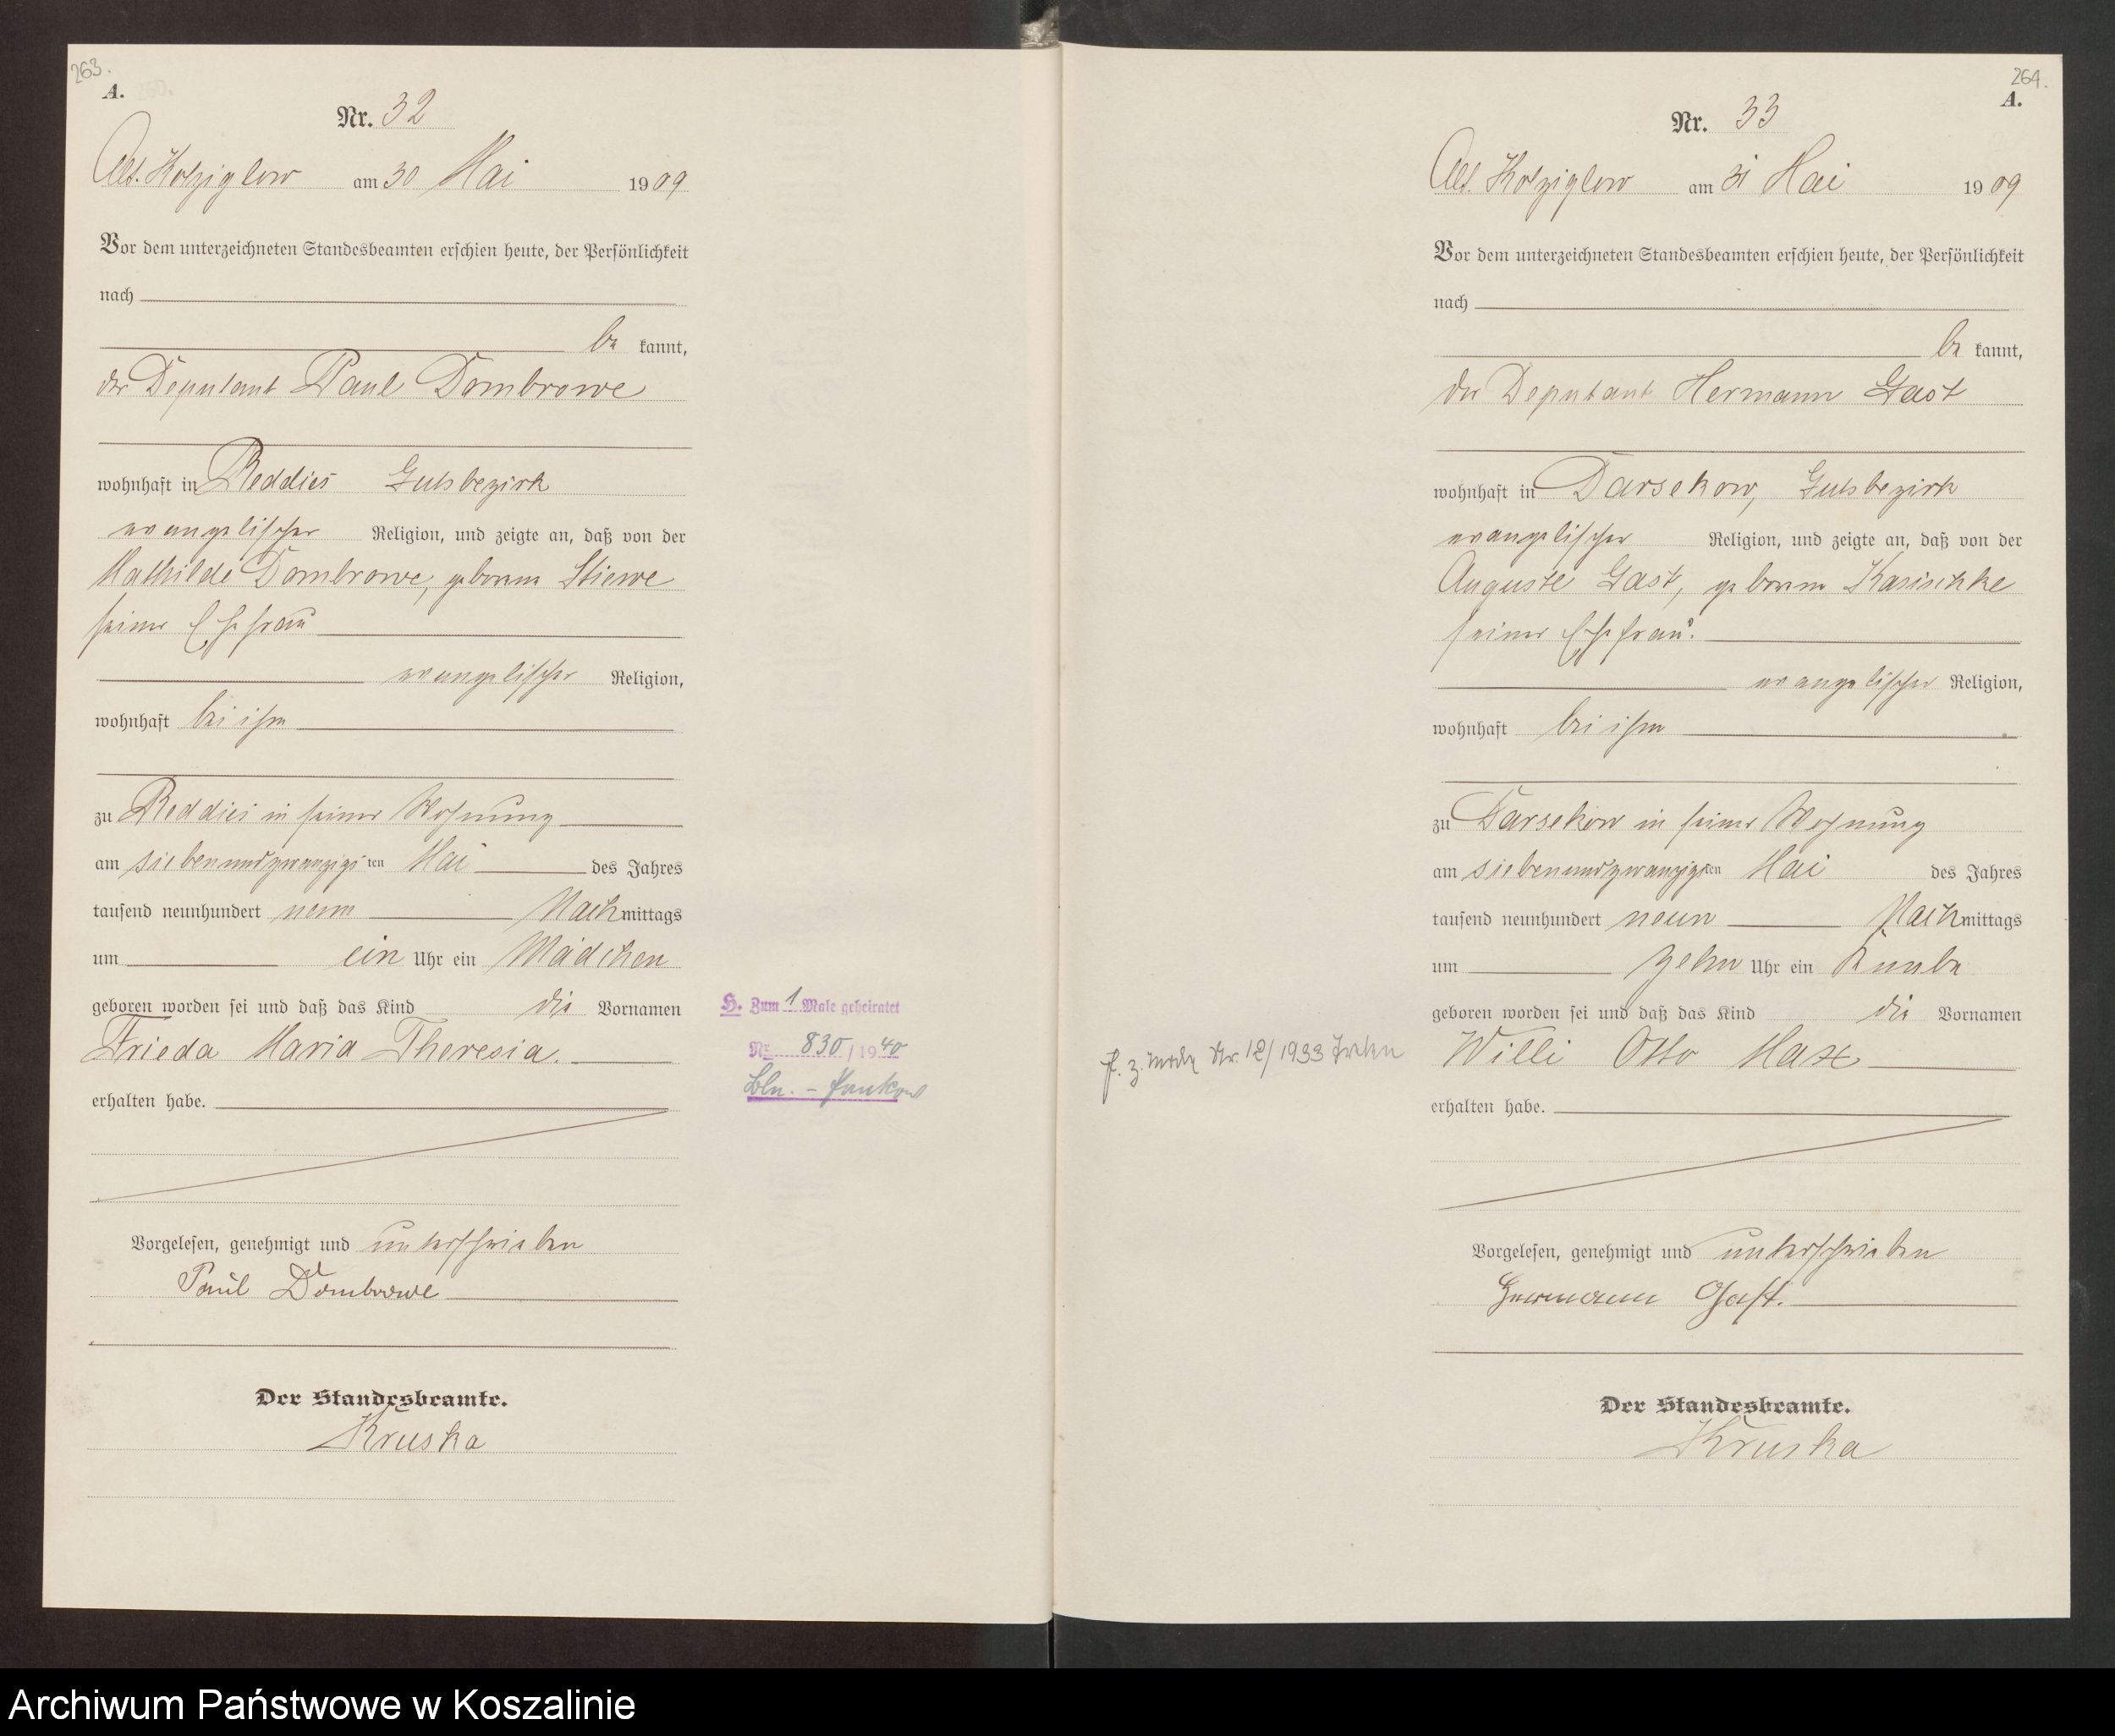 263.
A.
Nr. 32
Alt. Kolziglow am 30 Mai 1909
Vor dem unterzeichneten Standesbeamten erschien heute, der Persönlichkeit
nach
be kannt,
der Deputant Paul Dombrowe
wohnhaft in Reddies Gutsbezirk
evangelischer Religion, und zeigte an, daß von der
Mathilde Dombrowe, geborene Stiewe
seiner Ehefrau
evangelischer Religion,
wohnhaft bei ihm
zu Reddies in seiner Wohnung
am siebenundzwanzigsten Mai des Jahres
tausend neunhundert neun Nachmittags
um ein Uhr ein Mädchen
geboren worden sei und daß das Kind die Vornamen
Frieda Maria Theresia.
erhalten habe.
Vorgelesen, genehmigt und unterschrieben
Paul Dombrowe
Der Standesbeamte.
Kruska
H. Zum 1 Male geheiratet
Nr. 830/1940
Bln. - Pankow
264.
A.
Nr. 33
Alt. Kolziglow am 31 Mai 1909
Vor dem unterzeichneten Standesbeamten erschien heute, der Persönlichkeit
nach
be kannt,
der Deputant Hermann Gast
wohnhaft in Darsekow, Gutsbezirk
evangelischer Religion, und zeigte an, daß von der
Auguste Gast, geborene Kasischke
seiner Ehefrau.
evangelischer Religion,
wohnhaft bei ihm
zu Darsekow in seiner Wohnung
am siebenundzwanzigsten Mai des Jahres
tausend neunhundert neun Nachmittags
um zehn Uhr ein Knabe
geboren worden sei und daß das Kind die Vornamen
Willi Otto Max
erhalten habe.
Nr. 12/1933
Vorgelesen, genehmigt und unterschrieben
Hermann Gast.
Der Standesbeamte.
Kruska
Archiwum Państwowe w Koszalinie